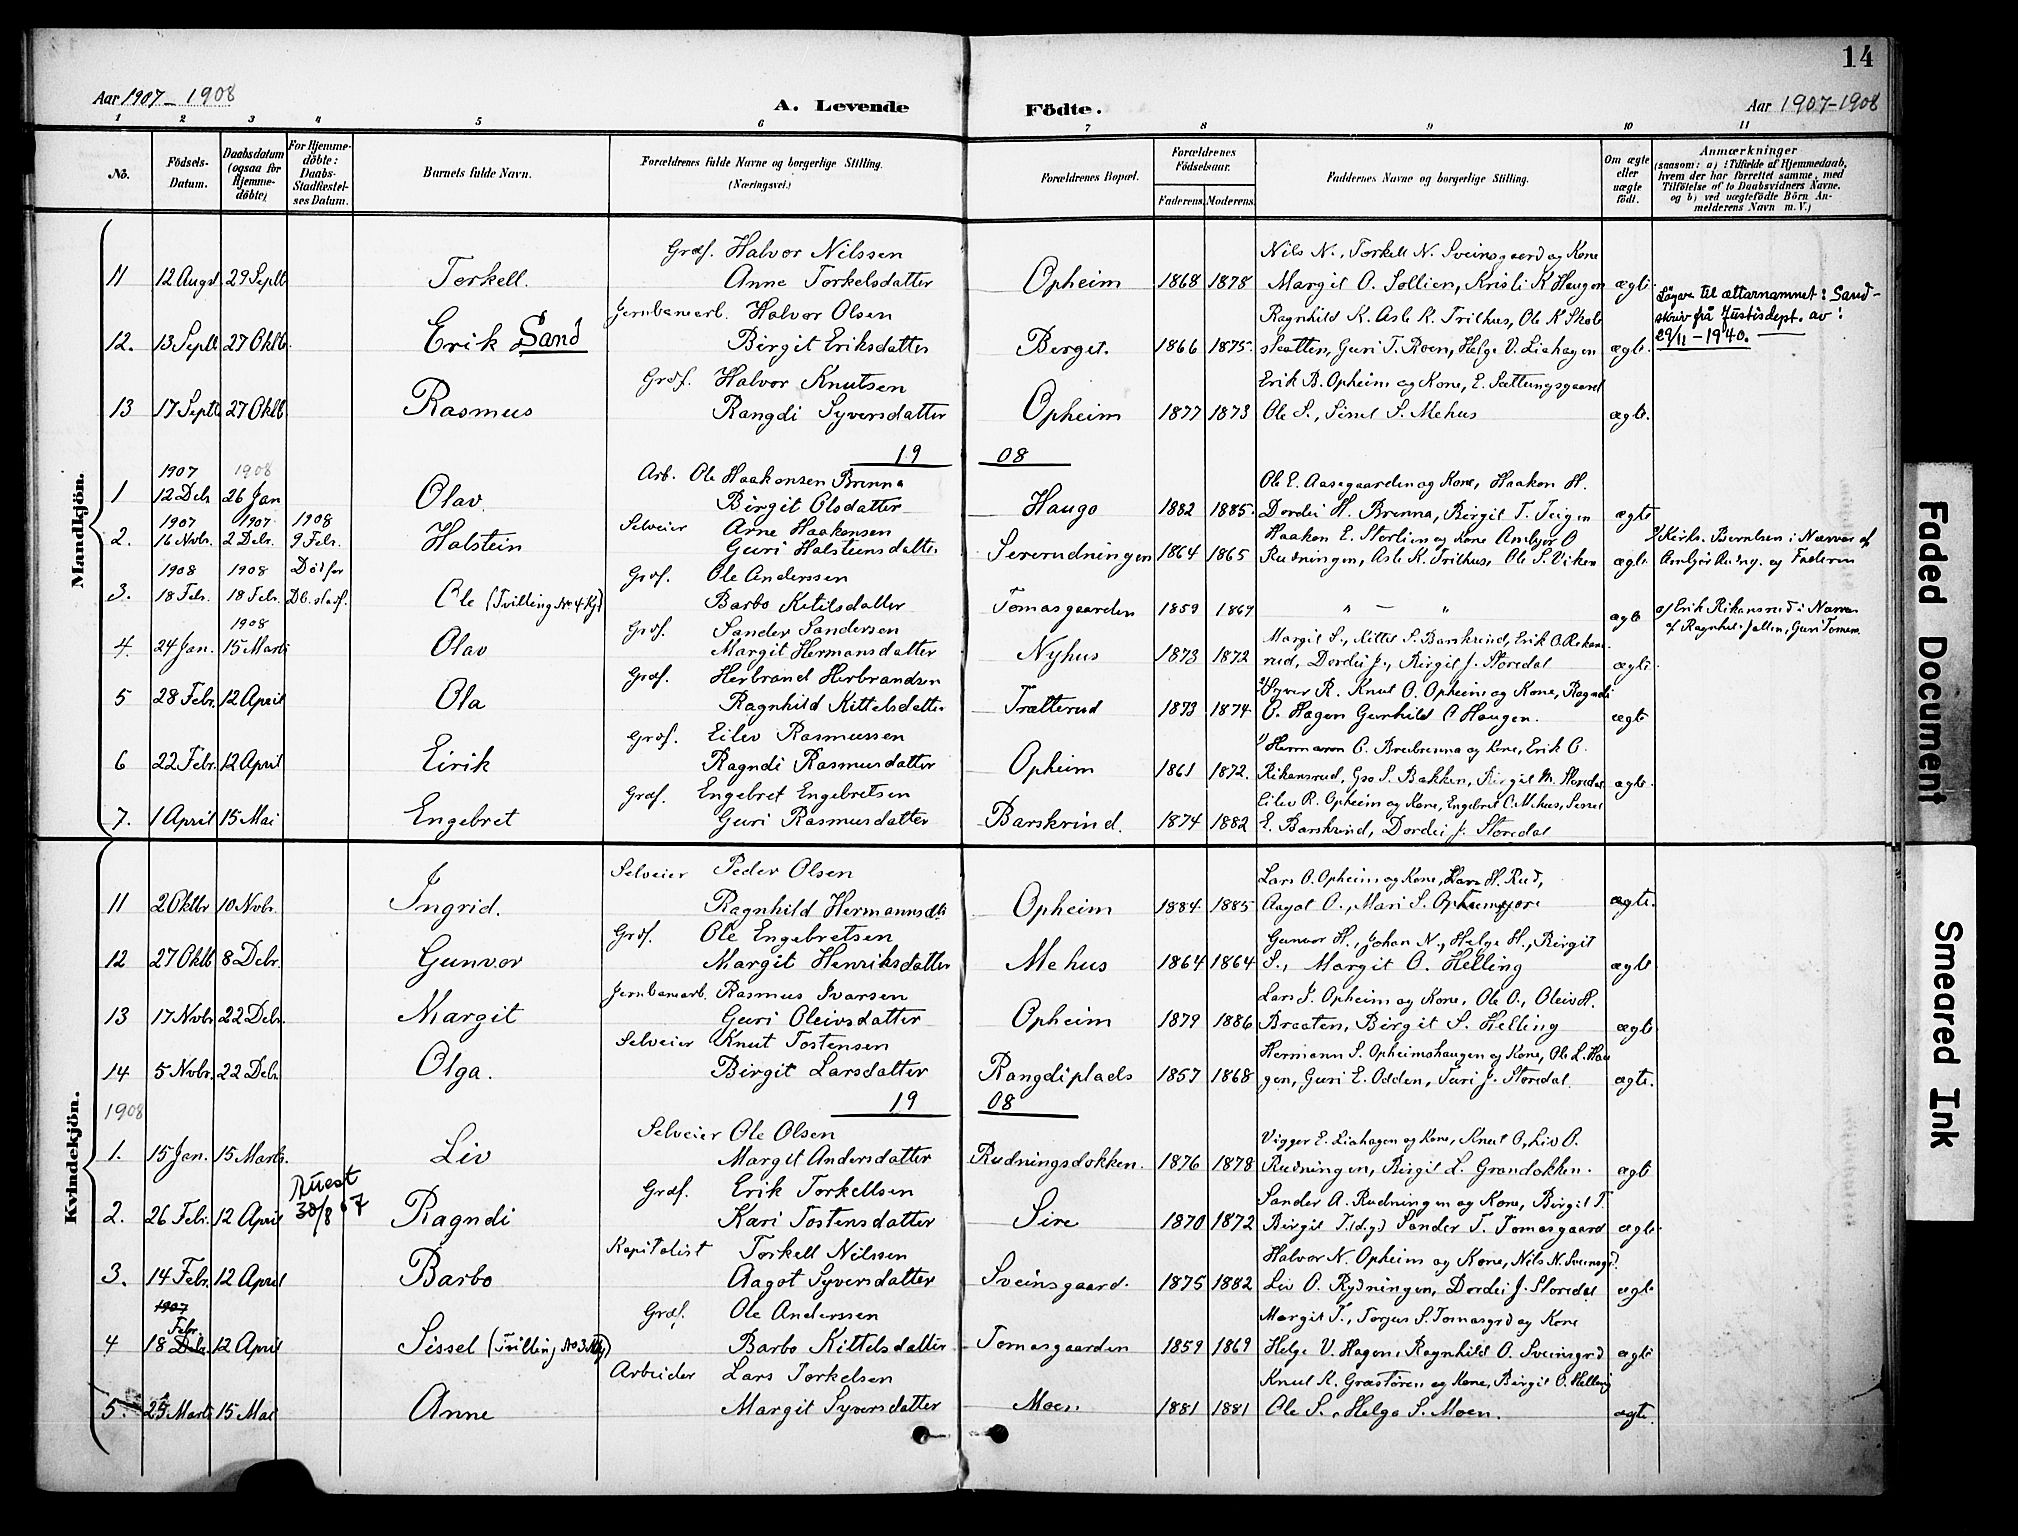 14
Aar 1907 - 1908
A. Levende Födte.
Aar 1907-1908
1 2 3 4 5 6 7 8 9 10 11
No.
Födsels-Datum.
Daabsdatum (ogsaa for Hjemme-döbte)
For Hjemme-döbte: Daabs-Stadfæstel-ses Datum.
Barnets fulde Navn.
Forældrenes fulde Navne og borgerlige Stilling. (Næringsvei.)
Forældrenes Bopæl.
Forældrenes Födselsaar.
Faderens Moderens
Faddernes Navne og borgerlige Stilling.
Om ægte eller uægte födt.
Anmærkninger
(saasom: a) i Tilfælde af Hjemmedaab, hvem der har forrettet samme, med Tilföielse af to Daabsvidners Navne. og b) ved uægtefödte Börn An-melderens Navn m. V.)
Mandkjön.
Grdf. Halvor Nilssen Nils N., Torkell N. Sveinsgaard og Kone
11 12 Augst 29 Septb Torkell. Anne Torkelsdatter Opheim 1868 1878 Margit O. Sollien, Kristi K Haugen ægte
Jernbanearb. Halvor Olsen Ragnhild K. Asle K. Trilhus, Ole K Skole
12. 13 Septb 27 Oktb. Erik Sand Birgit Eriksdatter Berget. 1866 1875. slaatten, Guri T. Roen, Helge V. Liahagen ægte.
til ættarnamnet: Sand-
skriv frå Justisdept. av:
29/11 - 1940.
Grdf. Halvor Knutsen Erik B. Opheim og Kone, E. Sættungsgaard
13 17 Septb 27 Oktb Rasmus Rangdi Syversdatter Opheim 1877 1873 Ole S., Sinet S. Mehus ægte.
19 08
1907 1908 Arb. Ole Haakonsen Brenna Ole E. Aasegaarden og Kone, Haakon H.
1 12 Deb 26 Jan Olav. Birgit Olsdatter Haugo 1882 1885. Dordei H. Brenna, Birgit T. Teigen ægte
1907 1907 1908 Selveier Arne Haakonsen Haakon E. Storlien og Kone Ambjør O
2. 16 Novbr. 2 Debr. 9 Febr. Halstein Guri Halsteinsdatter Sererudningen 1864 1865 Rudningen, Asle K. Trilhus, Ole S. Viken ægte
Kirks. Berntsen i Nærvær af
Ambjør Rudng. og Faderen
1908 1908 Död før Grdf. Ole Anderssen
3. 18 Febr. 18 Febr. Db. stadf. Ole (Tvilling No 4 Kj) Barbo Kitilsdatter Tomasgaarden 1859 1869 " - " ægte
Erik Rikansrud i Nærvær
af Ragnhil Jallen, Guri Tomasg
1908 Grdf. Sander Sandersen Margit S., Kittil S. Barskrind, Erik O. Rikans
4. 24 Jan. 15 Marts Olav Margit Hermansdatter Nyhus 1873 1872 rud, Dordei J., Birgit J. Storedal ægte.
Grdf. Herbrand Herbrandsen Syver R. Knut O. Opheim og Kone, Ragndi
5 28 Febr. 12 April Ola Ragnhild Kittelsdatter Trætterud 1873 1874 O. Hagen Gunhild O Haugen. ægte
Grdf. Eilev Rasmussen Hermann O. Brubrenna og Kone, Erik O.
6 22 Febr. 12 April Eirik Ragndi Rasmusdatter Opheim 1861 1872. Rikansrud, Gro S. Bakken, Birgit M. Storedal ægte.
Grdf. Engebret Engebretsen Eilev R. Opheim og Kone, Engebret O. Mehus, Sinet
7. 1 April 15 Mai Engebret Guri Rasmusdatter Barskrind. 1874 1882 E. Barskrind, Dordei J. Storedal
Kvindekjön.
Selveier Peder Olsen Lars O. Opheim og Kone, Hans H. Rud,
11 2 Oktbr 10 Novbr. Ingrid. Ragnhild Hermannsdtr Opheim 1884 1885 Aagot O., Mari S. Opheimsjore ægte.
Grdf. Ole Engebretsen Gunvor H., Johan N., Helge H., Birgit
12 27 Oktb 8 Debr. Gunvor Margit Henriksdatter Mehus 1864 1864 S., Margit O. Helling ægte
Jernbanearb. Rasmus Ivarsen Lars J. Opheim og Kone, Ole O., Oleiv H.
13 17 Novbr 22 Debr. Margit Guri Oleivsdatter Opheim 1879 1886 Braaten, Birgit S. Helling ægte
Selveier Knut Tostensen Hermann S. Opheimshaugen og Kone, Ole L. Hau
14 5 Novbr. 22 Debr. Olga. Birgit Larsdatter Rangdiplads 1857 1868 gen, Guri E. Odden, Turi J. Storedal. ægte.
1908 19 08
Selveier Ole Olsen Vigger E. Liahagen og Kone, Knut O, Liv O.
1. 15 Jan. 15 Marts. Liv Margit Andersdatter Rudningsdokken. 1876 1878 Rudningen, Birgit L. Grondokken. ægte
30/8 07 Grdf. Erik Torkellsen Sander A. Rudningen og Kone, Birgit T.
2. 26 Feb. 12 April Ragndi Kari Tostensdatter Sire 1870 1872 Birgit T. (d.y.) Sander T. Tomasgaard ægte
Kapitalist Torkell Nilssen Halvor N. Opheim og Kone, Nils N. Sveinsgrd.
3. 14 Febr. 12 April Barbo Aagot Syversdatter Sveinsgaard. 1875 1882 Liv O. Rudningen, Dordei J. Storedal ægte
1907 Febr. Grdf. Ole Anderssen Margit T., Torjus S. Tomasgrd og Kone
4 18 Deb. 12 April Sissel (Tvilling No 3 Mkj) Barbo Kittelsdatter Tomasgaarden 1859 1869 Helge V. Hagen, Ragnhild O. Sveinsgrd ægte
Arbeider Lars Torkelsen Knut K. Græstøren og Kone, Birgit O. Helling
5. 25 Marts 15 Mai Anne Margit Syversdatter Moen 1881 1881 Ole S., Helga S. Moen. ægte.
Faded Document
Smeared Ink